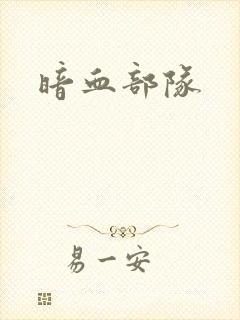 暗血部隊
易一安